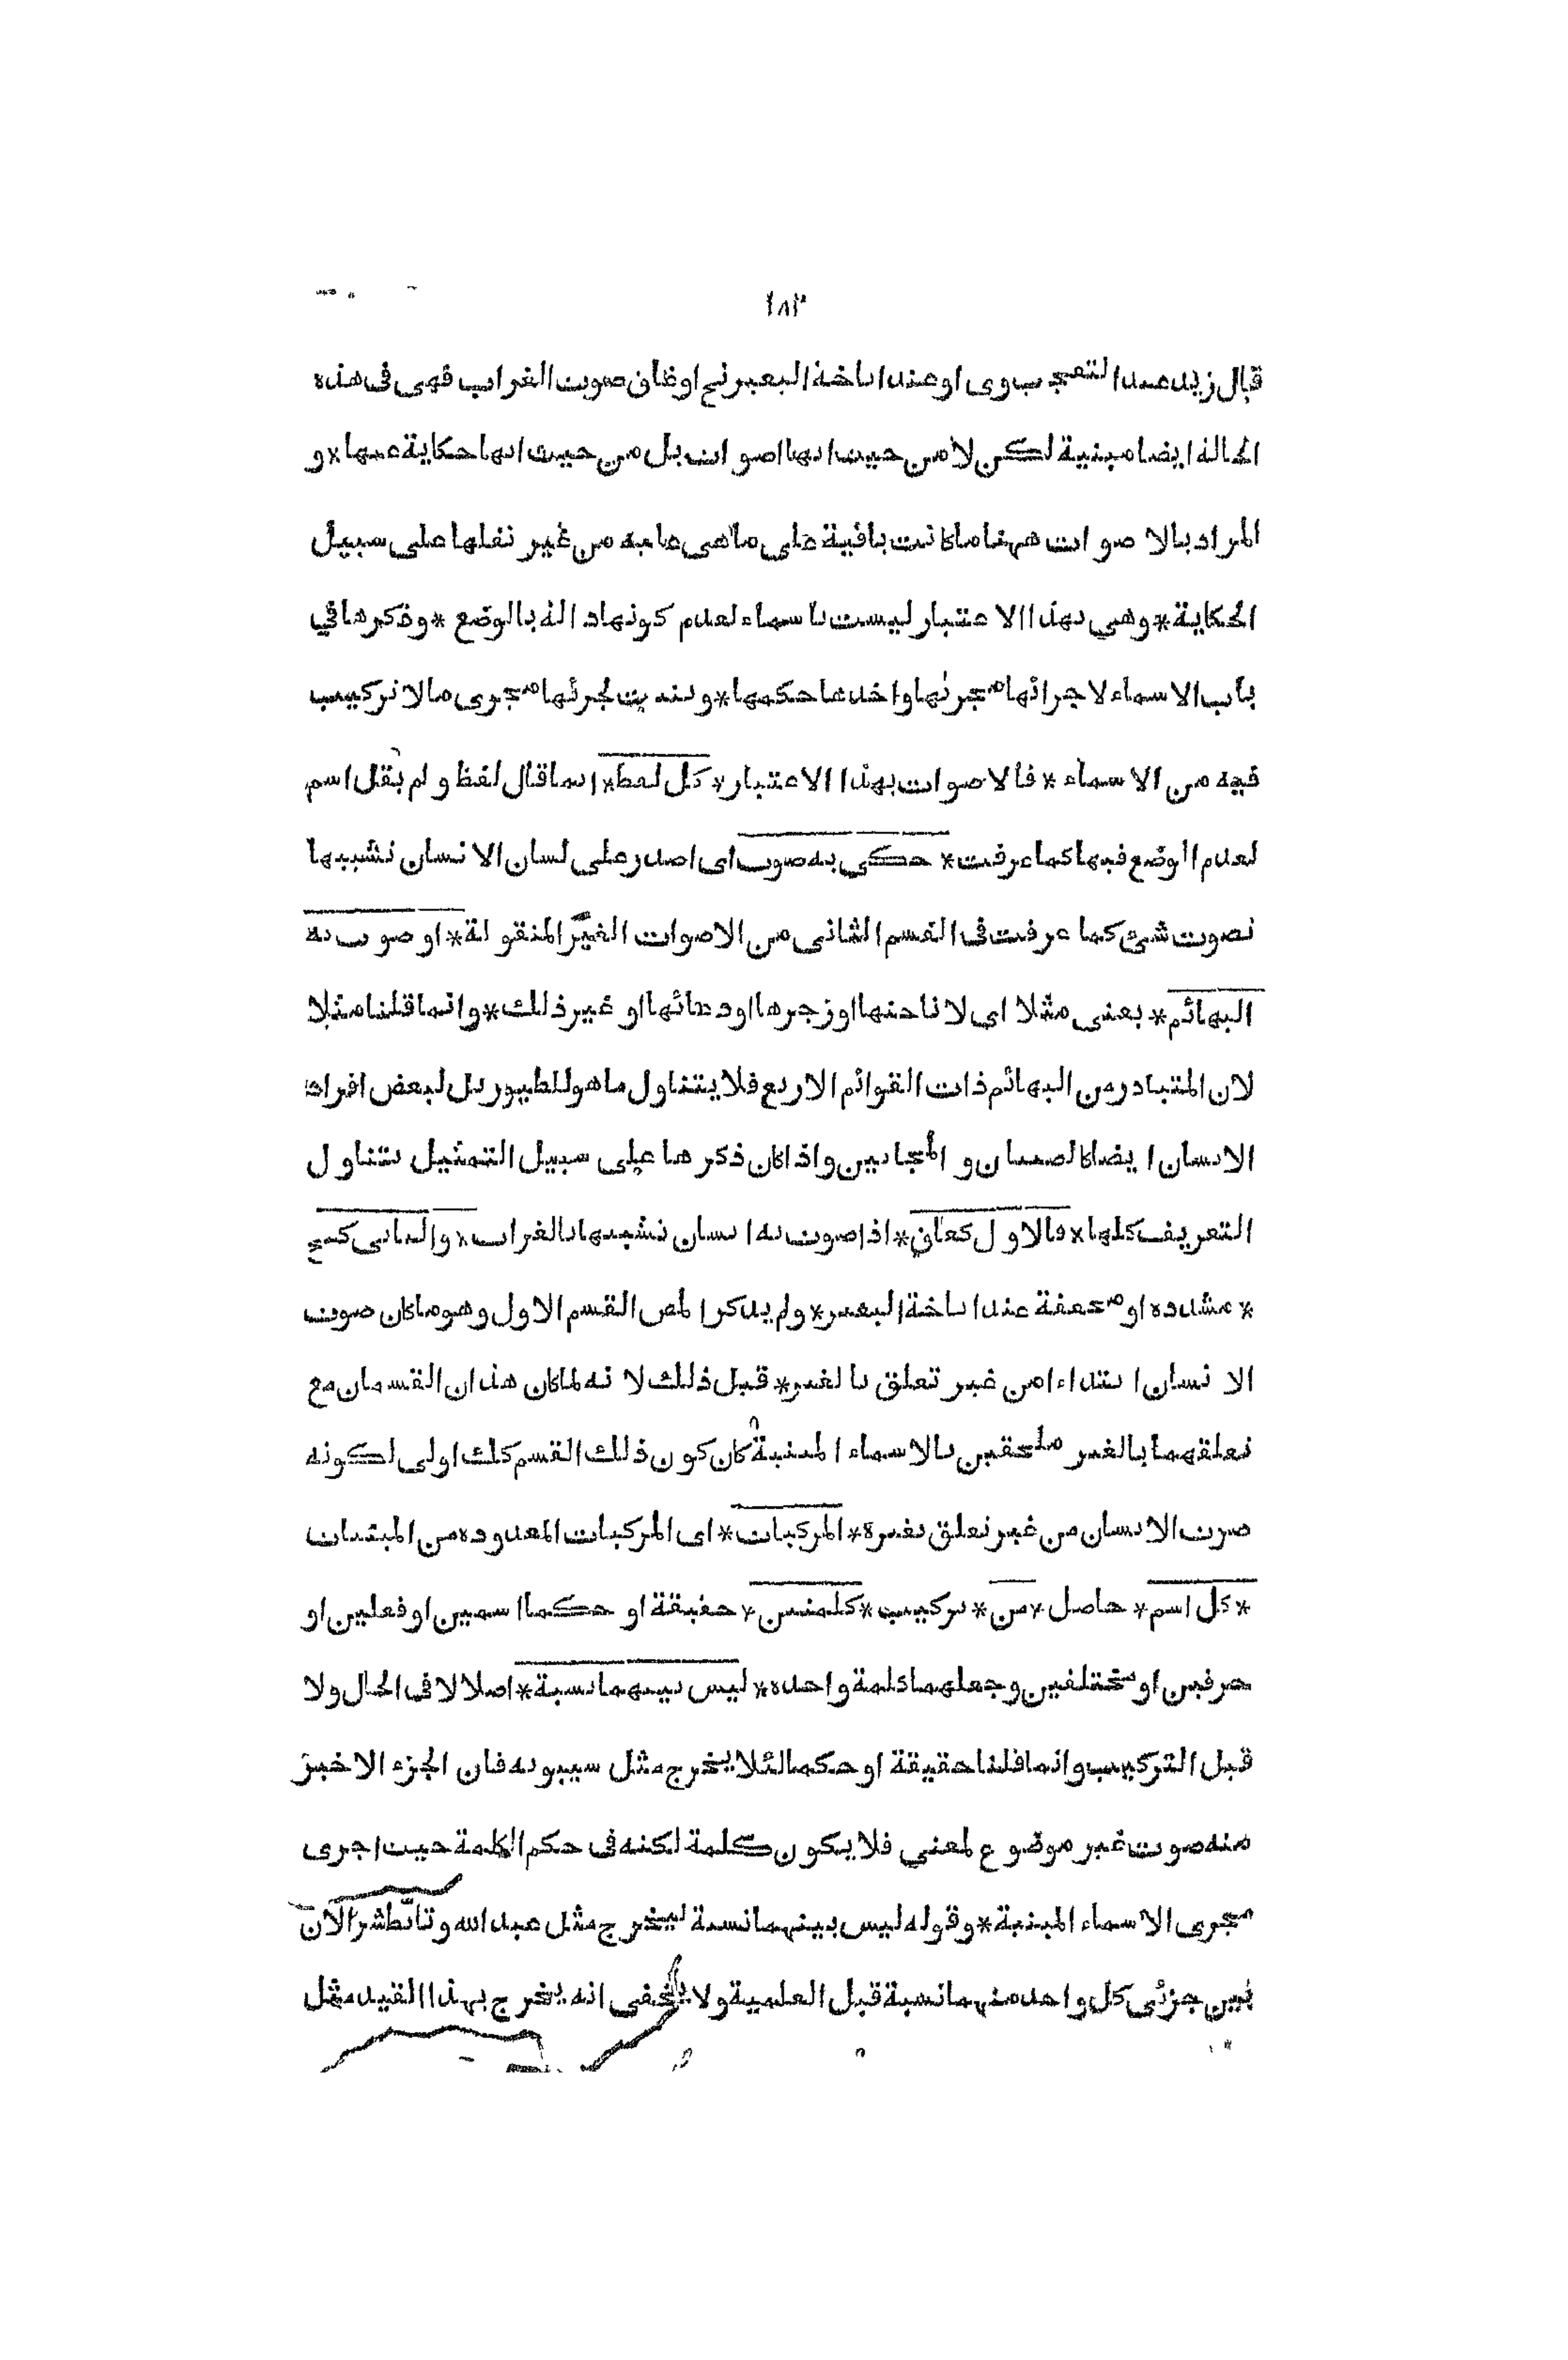 ١٨٢
قال زيد عند التعجب وى او عند اناخة البعير نخ او غاق صوت الغراب فهى فى هذه
الحالة ايضا مبنية لكن لا من حيث انها اصوات بل من حيث انها حكاية عنها * و
المراد بالاصوات ههنا ما كانت باقية على ما هى عليه من غير نقلها على سبيل
الحكاية * وهى بهذا الاعتبار ليست باسماء لعدم كونها دالة بالوضع * وذكرها في
باب الاسماء لاجرائها مجرىها واخذها حكمها * وبنيت لجريها مجرى ما لا تركيب
فيه من الاسماء * فالاصوات بهذا الاعتبار * كل لفظ * انما قال لفظ و لم يقل اسم
لعدم الوضع فيها كما عرفت * حكى به صوت اى اصدر على لسان الانسان تشبيها
بصوت شئ كما عرفت فى القسم الثانى من الاصوات الغير المنقولة * او صوت به
البهائم * بعنى مثلا اى لاناختها او زجرها او دعائها او غير ذلك * وانما قلنا مثلا
لان المتبادر من البهائم ذات القوائم الاربع فلا يتناول ما هو للطيور بل لبعض افراد
الانسان ايضا كالصبيان و المجانين واذا كان ذكرها على سبيل التمثيل يتناول
التعريف كلها * فالاول كغاق * اذا صوت به انسان تشبيها بالغراب * والثانى كنخ
* مشددة او مخففة عند اناخة البعير * ولم يذكر المص القسم الاول وهو ما كان صوت
الانسان ابتداءا من غير تعلق بالغير * قبل ذلك لانه لما كان هذان القسمان مع
تعلقهما بالغير ملحقين بالاسماء المبنية كان كون ذلك القسم كلك اولى لكونه
صوت الانسان من غير تعلق بغيره * المركبات * اى المركبات المعدودة من المبنيات
* كل اسم * حاصل * من * تركيب * كلمتين * حقيقة او حكما اسمين او فعلين او
حرفين او مختلفين وجعلهما كلمة واحدة * ليس بينهما نسبة * اصلا لا فى الحال ولا
قبل التركيب وانما قلنا حقيقة او حكما لئلا يخرج مثل سيبويه فان الجزء الاخير
منه صوت غير موضوع لمعنى فلا يكون كلمة لكنه فى حكم الكلمة حيث اجرى
مجرى الاسماء المبنية * وقوله ليس بينهما نسبة ليخرج مثل عبد الله وتابّط شرّا لان
بين جزئى كل واحد منهما نسبة قبل العلمية ولا يخفى انه يخرج بهذا القيد مثل